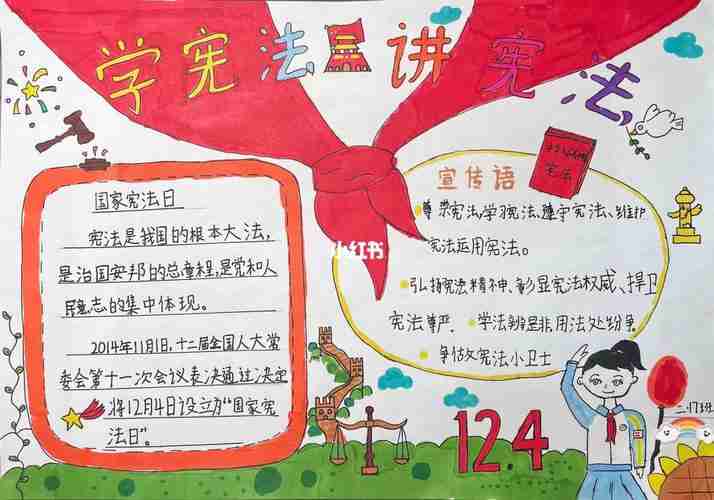 学宪法 讲宪法
国家宪法日
宪法是我国的根本大法,
是治国安邦的总章程,是党和人
民意志的集中体现。
2014年11月1日,十二届全国人大常
委会第十一次会议表决通过决定
将12月4日设立为“国家宪
法日”。
小红书
宣传语
宪法
尊崇宪法,学习宪法、遵守宪法、维护
宪法运用宪法。
弘扬宪法精神、彰显宪法权威、捍卫
宪法尊严.
学法辨是非,用法处纷争
争做宪法小卫士
12.4